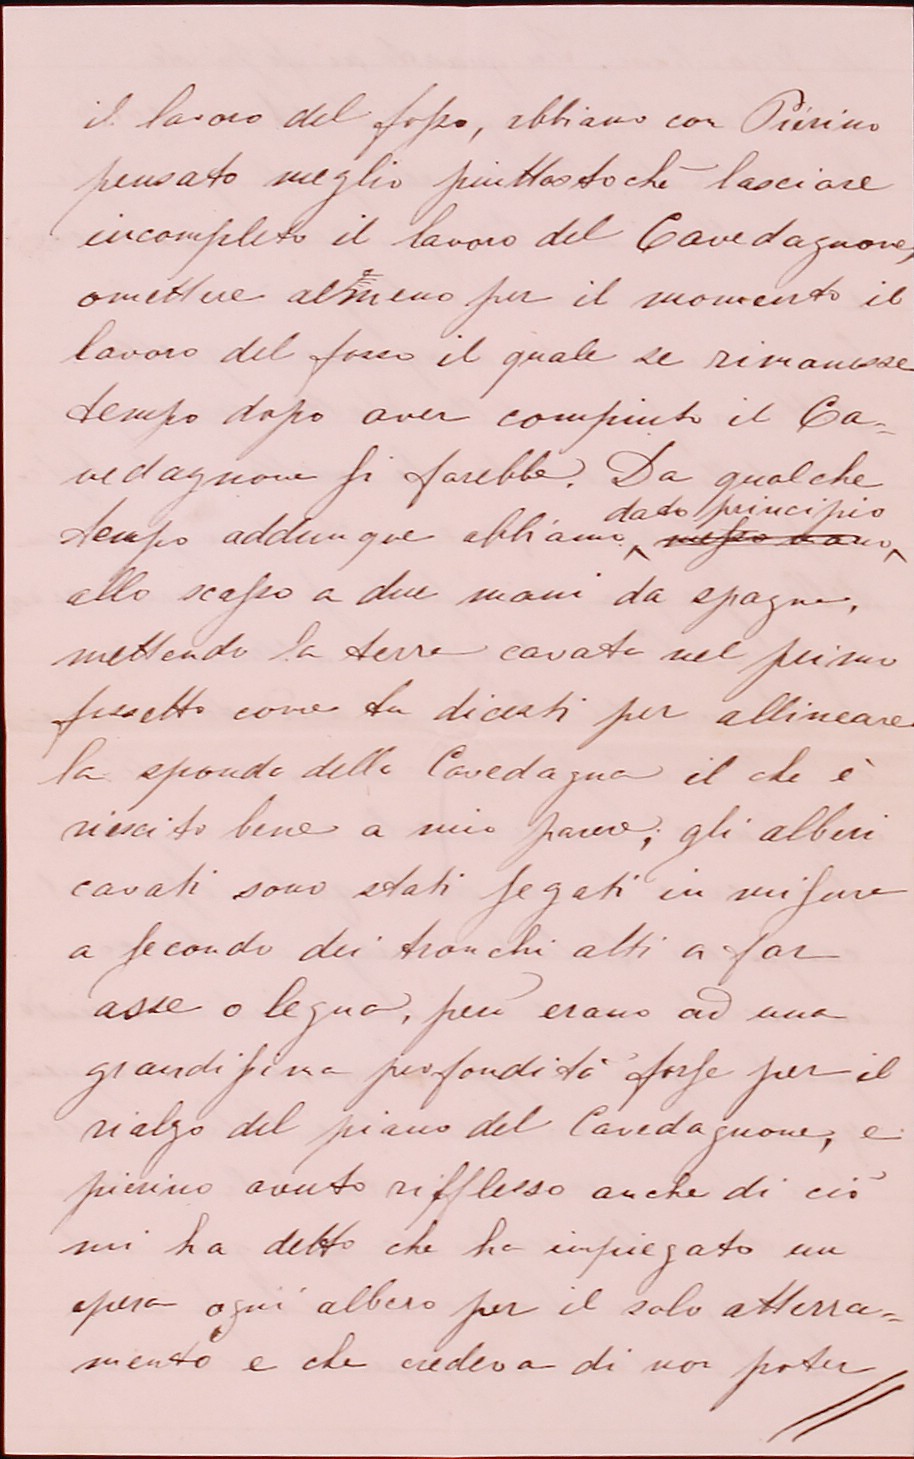 il lavoro del fosso, abbiamo con Pierino
pensato meglio piuttostochè lasciare
incompleto il lavoro del Cavedagnone,
omettere almeno per il momento il
lavoro del fosso il quale se rimanesse
tempo dopo aver compiuto il Ca-
vedagnone si farebbe. Da qualche
tempo addunque abbiamo dato principio
allo scasso a due mani da spagna,
mettendo la terra cavata nel primo
fossetto come tu dicesti per allineare
la sponda della Cavedagna il che è
riescito bene a mio parere; gli alberi
cavati sono stati segati in misura
a secondo dei tronchi atti a far
asse o legna, però erano ad una
grandissima profondità forse per il
rialzo del piano del Cavedagnone, e
pierino avuto rifflesso anche di ciò
mi ha detto che ha impiegato un
opera ogni albero per il solo atterra-
mento e che credeva di non poter